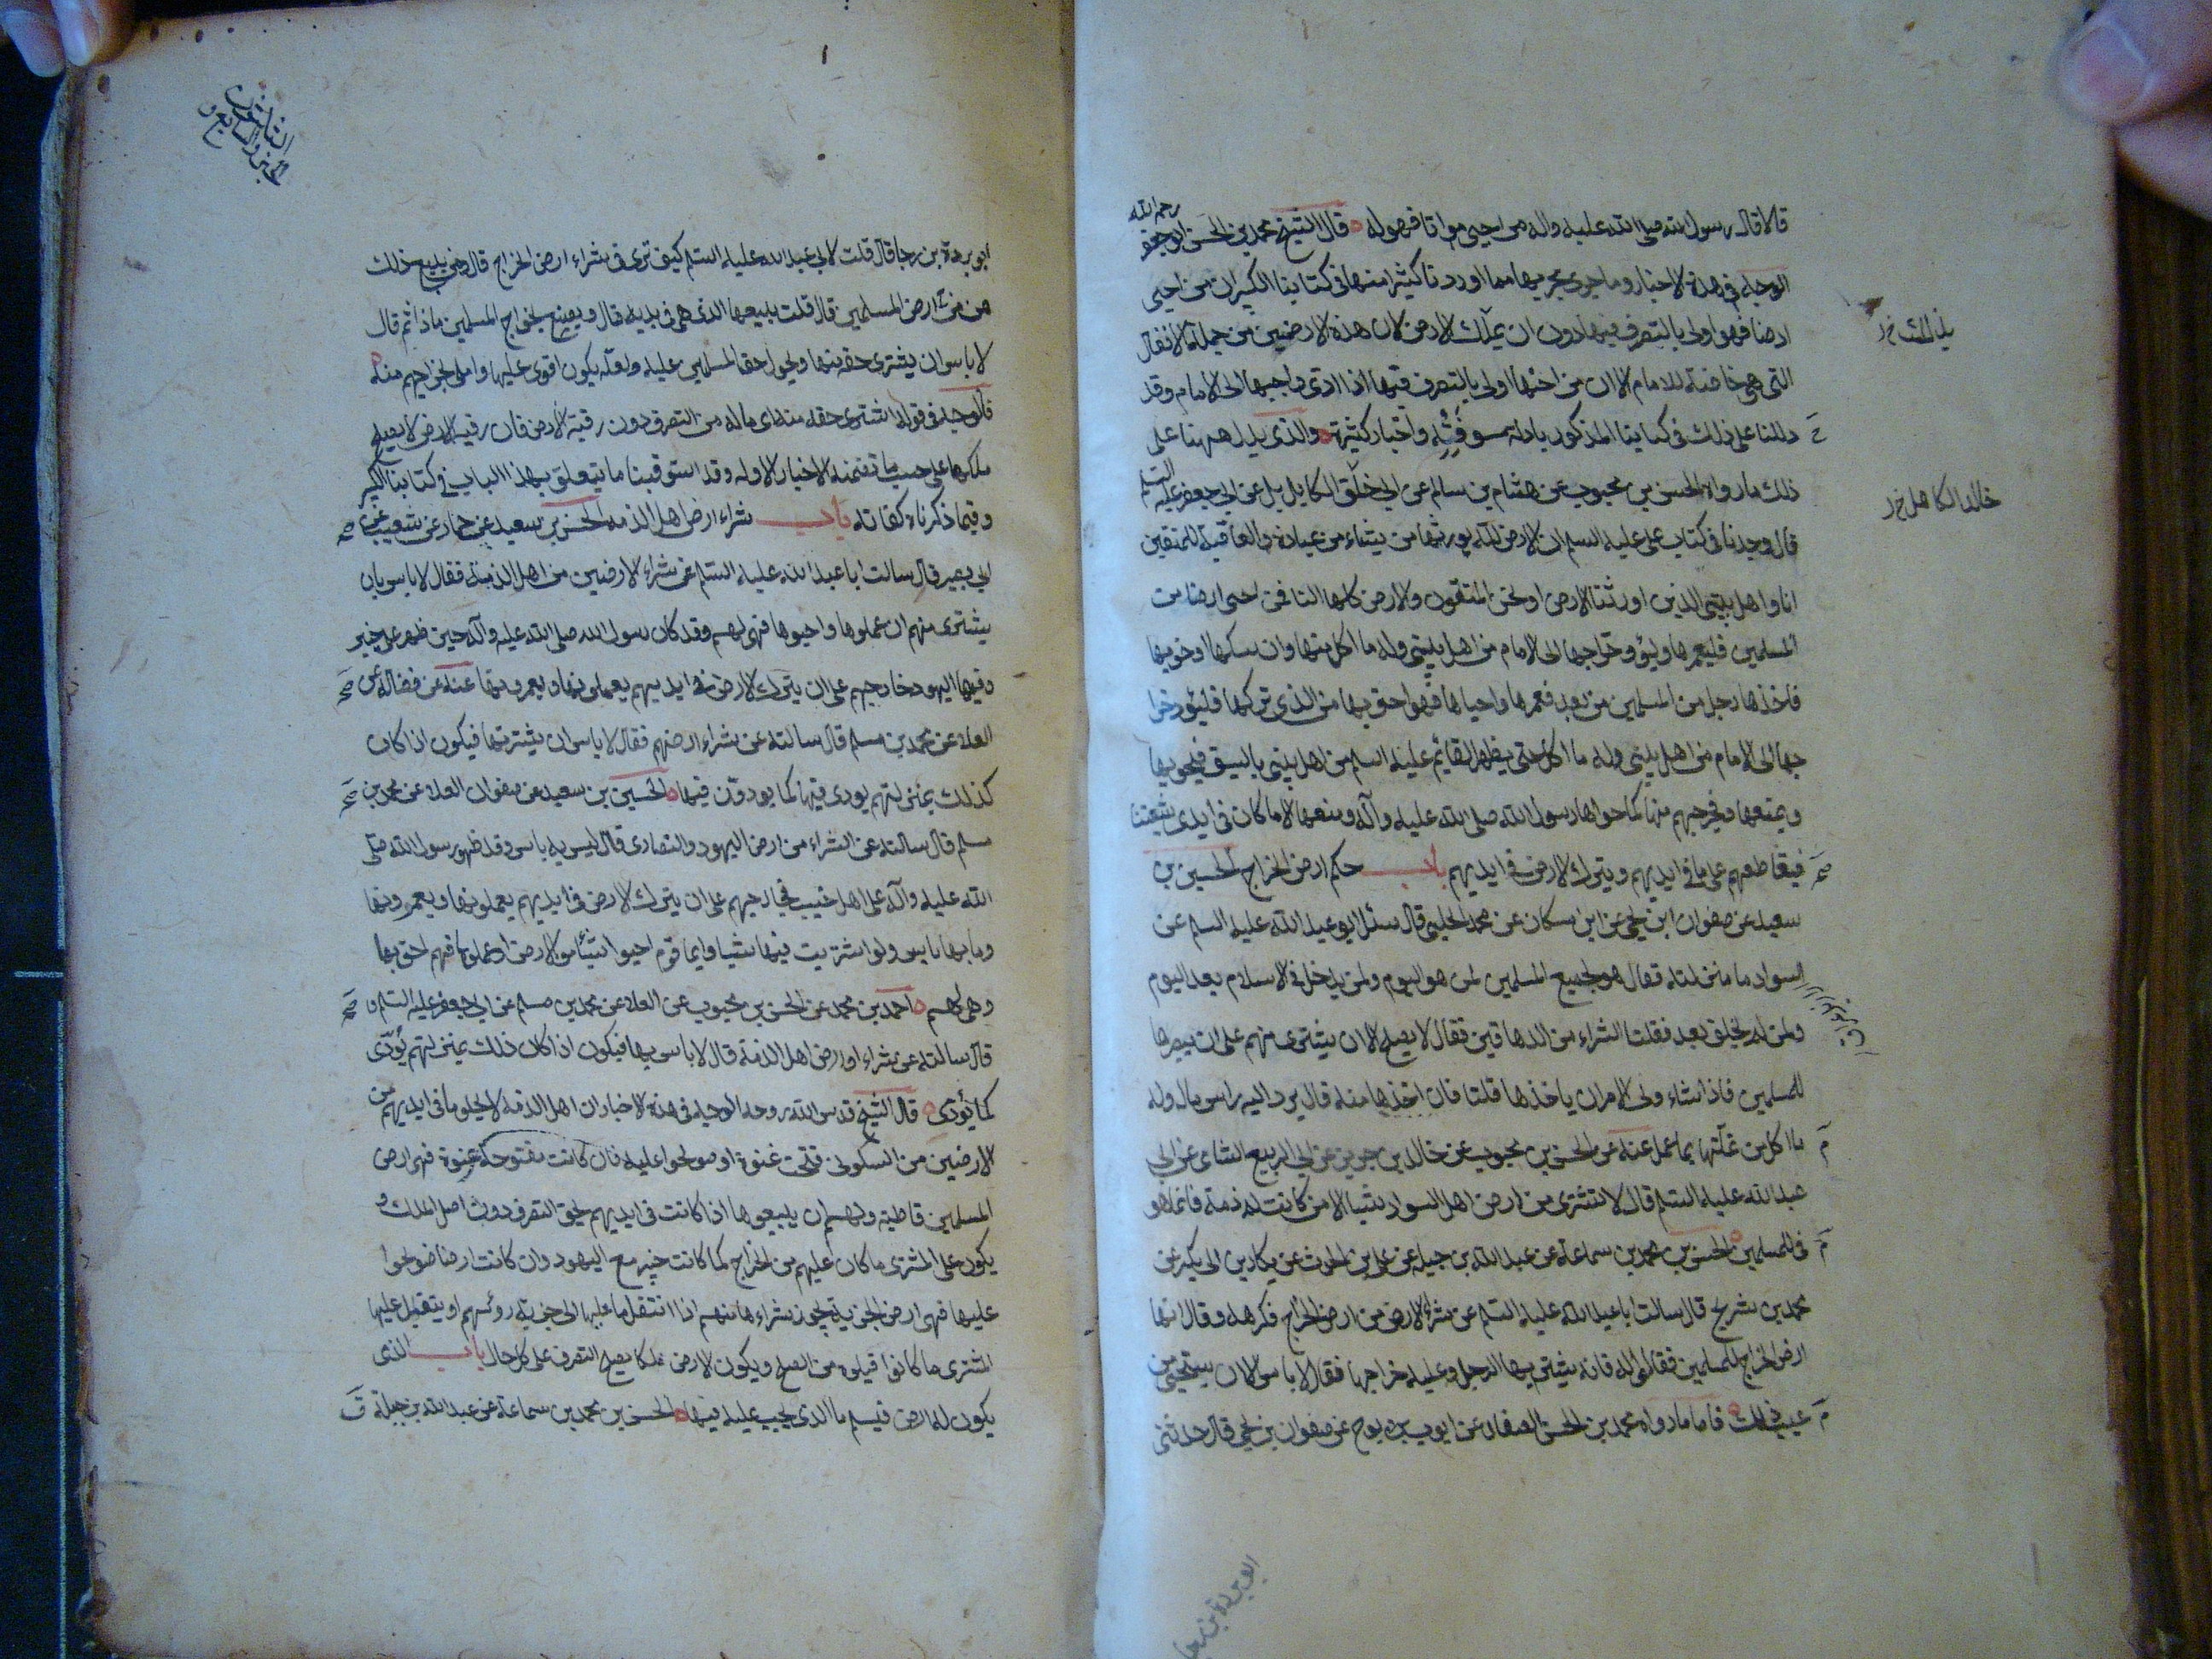 قالا قال رسول الله صلى الله عليه واله من احيى مواتا فهو له قال الشيخ محمد بن الحسن ابو جعفر رحمه الله
الوجه في هذه الاخبار وما جرى مجريها مما اوردنا كثيرا منها في كتابنا الكبير ان من احيى
ارضا فهو اولى بالتصرف فيها دون ان يملك الارض لان هذه الارضين من جملة الانفال
التي هي خاصة للامام الا ان من احياها اولى بالتصرف فيها اذا ادى واجبها الى الامام وقد
دللنا على ذلك في كتابنا المذكور بادلة واخبار كثيرة والذي يدل ههنا على
ذلك ما رواه الحسن بن محبوب عن هشام بن سالم عن ابي خالد الكابلي عن ابي جعفر عليه السلم
قال وجدنا في كتاب علي عليه السلم ان الارض لله يورثها من يشاء من عباده والعاقبة للمتقين
انا واهل بيتي الذين اورثنا الارض ونحن المتقون والارض كلها لنا فمن احيى ارضا من
المسلمين فليعمرها وليؤد خراجها الى الامام من اهل بيتي وله ما اكل منها وان تركها او خربها
فاخذها رجل من المسلمين من بعده فعمرها واحياها فهو احق بها من الذي تركها فليؤد خرا
جها الى الامام من اهل بيتي وله ما اكل حتى يظهر القائم عليه السلم من اهل بيتي بالسيف فيحويها
ويمنعها ويخرجهم منها كما حواها رسول الله صلى الله عليه وآله ومنعها الا ما كان في ايدي شيعتنا
فيقاطعهم على ما في ايديهم ويترك الارض في ايديهم باب حكم ارض الخراج الحسين بن
سعيد عن صفوان ابن يحيى عن ابن مسكان عن محمد الحلبي قال سئل ابو عبد الله عليه السلم عن
السواد ما منزلته فقال هو لجميع المسلمين لمن هو اليوم ولمن يدخل في الاسلام بعد اليوم
ولمن لم يخلق بعد فقلت الشراء من الدهاقين فقال لا يصلح الا ان يشترى منهم على ان يصيرها
للمسلمين فاذا شاء ولي الامر ان ياخذها قلنا فان اخذها منه قال يرد اليه راس ماله وله
ما اكل من غلتها بما عمل عنه عن الحسن بن محبوب عن خالد بن جرير عن ابي الربيع الشامي عن ابي
عبد الله عليه السلم قال لا تشترى من ارض اهل السواد شيئا الا من كانت له ذمة فانما هو
فئ للمسلمين الحسن بن محمد بن سماعة عن عبد الله بن جبلة عن علي بن الحرث عن بكار بن ابي بكر عن
محمد بن شريح قال سالت ابا عبد الله عليه السلم عن شراء الارض من ارض الخراج فكرهه وقال انما
ارض الخراج للمسلمين فقالوا له فانه يشتريها الرجل وعليه خراجها فقال لا باس الا ان يستحيي من
عيب ذلك فاما ما رواه محمد بن الحسن الصفار عن ايوب بن نوح عن صفوان بن يحيى قال حدثني
خالد الكاهلي
ابو بردة بن رجا
ابو بردة بن رجا قال قلت لابي عبد الله عليه السلم كيف ترى في شراء ارض الخراج قال ومن يبيع ذلك
هي ارض المسلمين قال قلت يبيعها الذي هي في يديه قال ويصنع بخراج المسلمين ماذا ثم قال
لا باس ان يشترى حقه منها ويحول حق المسلمين عليه ولعله يكون اقوى عليها واملى بخراجهم منه
فالوجه في قوله اشترى حقه منه اي ماله من التصرف دون رقبة الارض فان رقبة الارض لا يصح
ملكها على حسب ما تضمنه الاخبار الاوله وقد استوفينا ما يتعلق بهذا الباب في كتابنا الكبير
وفيما ذكرناه كفاية باب شراء ارض اهل الذمة الحسين بن سعيد عن حماد عن شعيب عن
ابي بصير قال سالت ابا عبد الله عليه السلم عن شراء الارضين من اهل الذمة فقال لا باس بان
يشترى منهم ان عملوها واحيوها فهي لهم وقد كان رسول الله صلى الله عليه وآله حين ظهر على خيبر
وفيها اليهود خارجهم على ان يترك الارض في ايديهم يعملونها ويعمرونها عنه عن فضالة عن
العلاء عن محمد بن مسلم قال سالته عن شراء ارضهم فقال لا باس ان يشتريها فيكون اذا كان
كذلك بمنزلتهم يودى فيها كما يودون فيها الحسين بن سعيد عن صفوان العلاء عن محمد بن
مسلم قال سالته عن الشراء من ارض اليهود والنصارى قال ليس به باس وقد ظهر رسول الله صلى
الله عليه وآله على اهل خيبر فخارجهم على ان يترك الارض في ايديهم يعملونها ويعمرونها
وما بها باس ولو اشتريت فيها شيئا وايما قوم احيوا شيئا من الارض او عملوها فهم احق بها
وهي لهم احمد بن محمد عن الحسن بن محبوب عن العلاء عن محمد بن مسلم عن ابي جعفر عليه السلم
قال سالته عن شراء ارض اهل الذمة قال لا باس بها فيكون اذا كان ذلك بمنزلتهم يؤدى
كما يؤدى قال الشيخ قدس الله روحه الوجه في هذه الاخبار ان اهل الذمة لا يخلو ما في ايديهم من
الارضين من ان يكون فتحت عنوة او صولحوا عليه فان كانت مفتوحة عنوة فهي ارض
المسلمين قاطبة ولهم ان يبيعوها اذا كانت في ايديهم بحق التصرف دون اصل الملك و
يكون على المشتري ما كان عليهم من الخراج كما كانت خيبر مع اليهود وان كانت ارضا صولحوا
عليها فهي ارض الجزية يجوز شراءها منهم اذا انتقل ما عليها الى جزية رؤسهم او يتقبل عليها
المشتري ما كانوا قبلوه من الصلح ويكون الارض ملكا يصح التصرف على كل حال باب الذي
يكون له ارض فيسلم ما الذي يجب عليه فيها الحسن بن محمد بن سماعة عن عبد الله بن جبلة